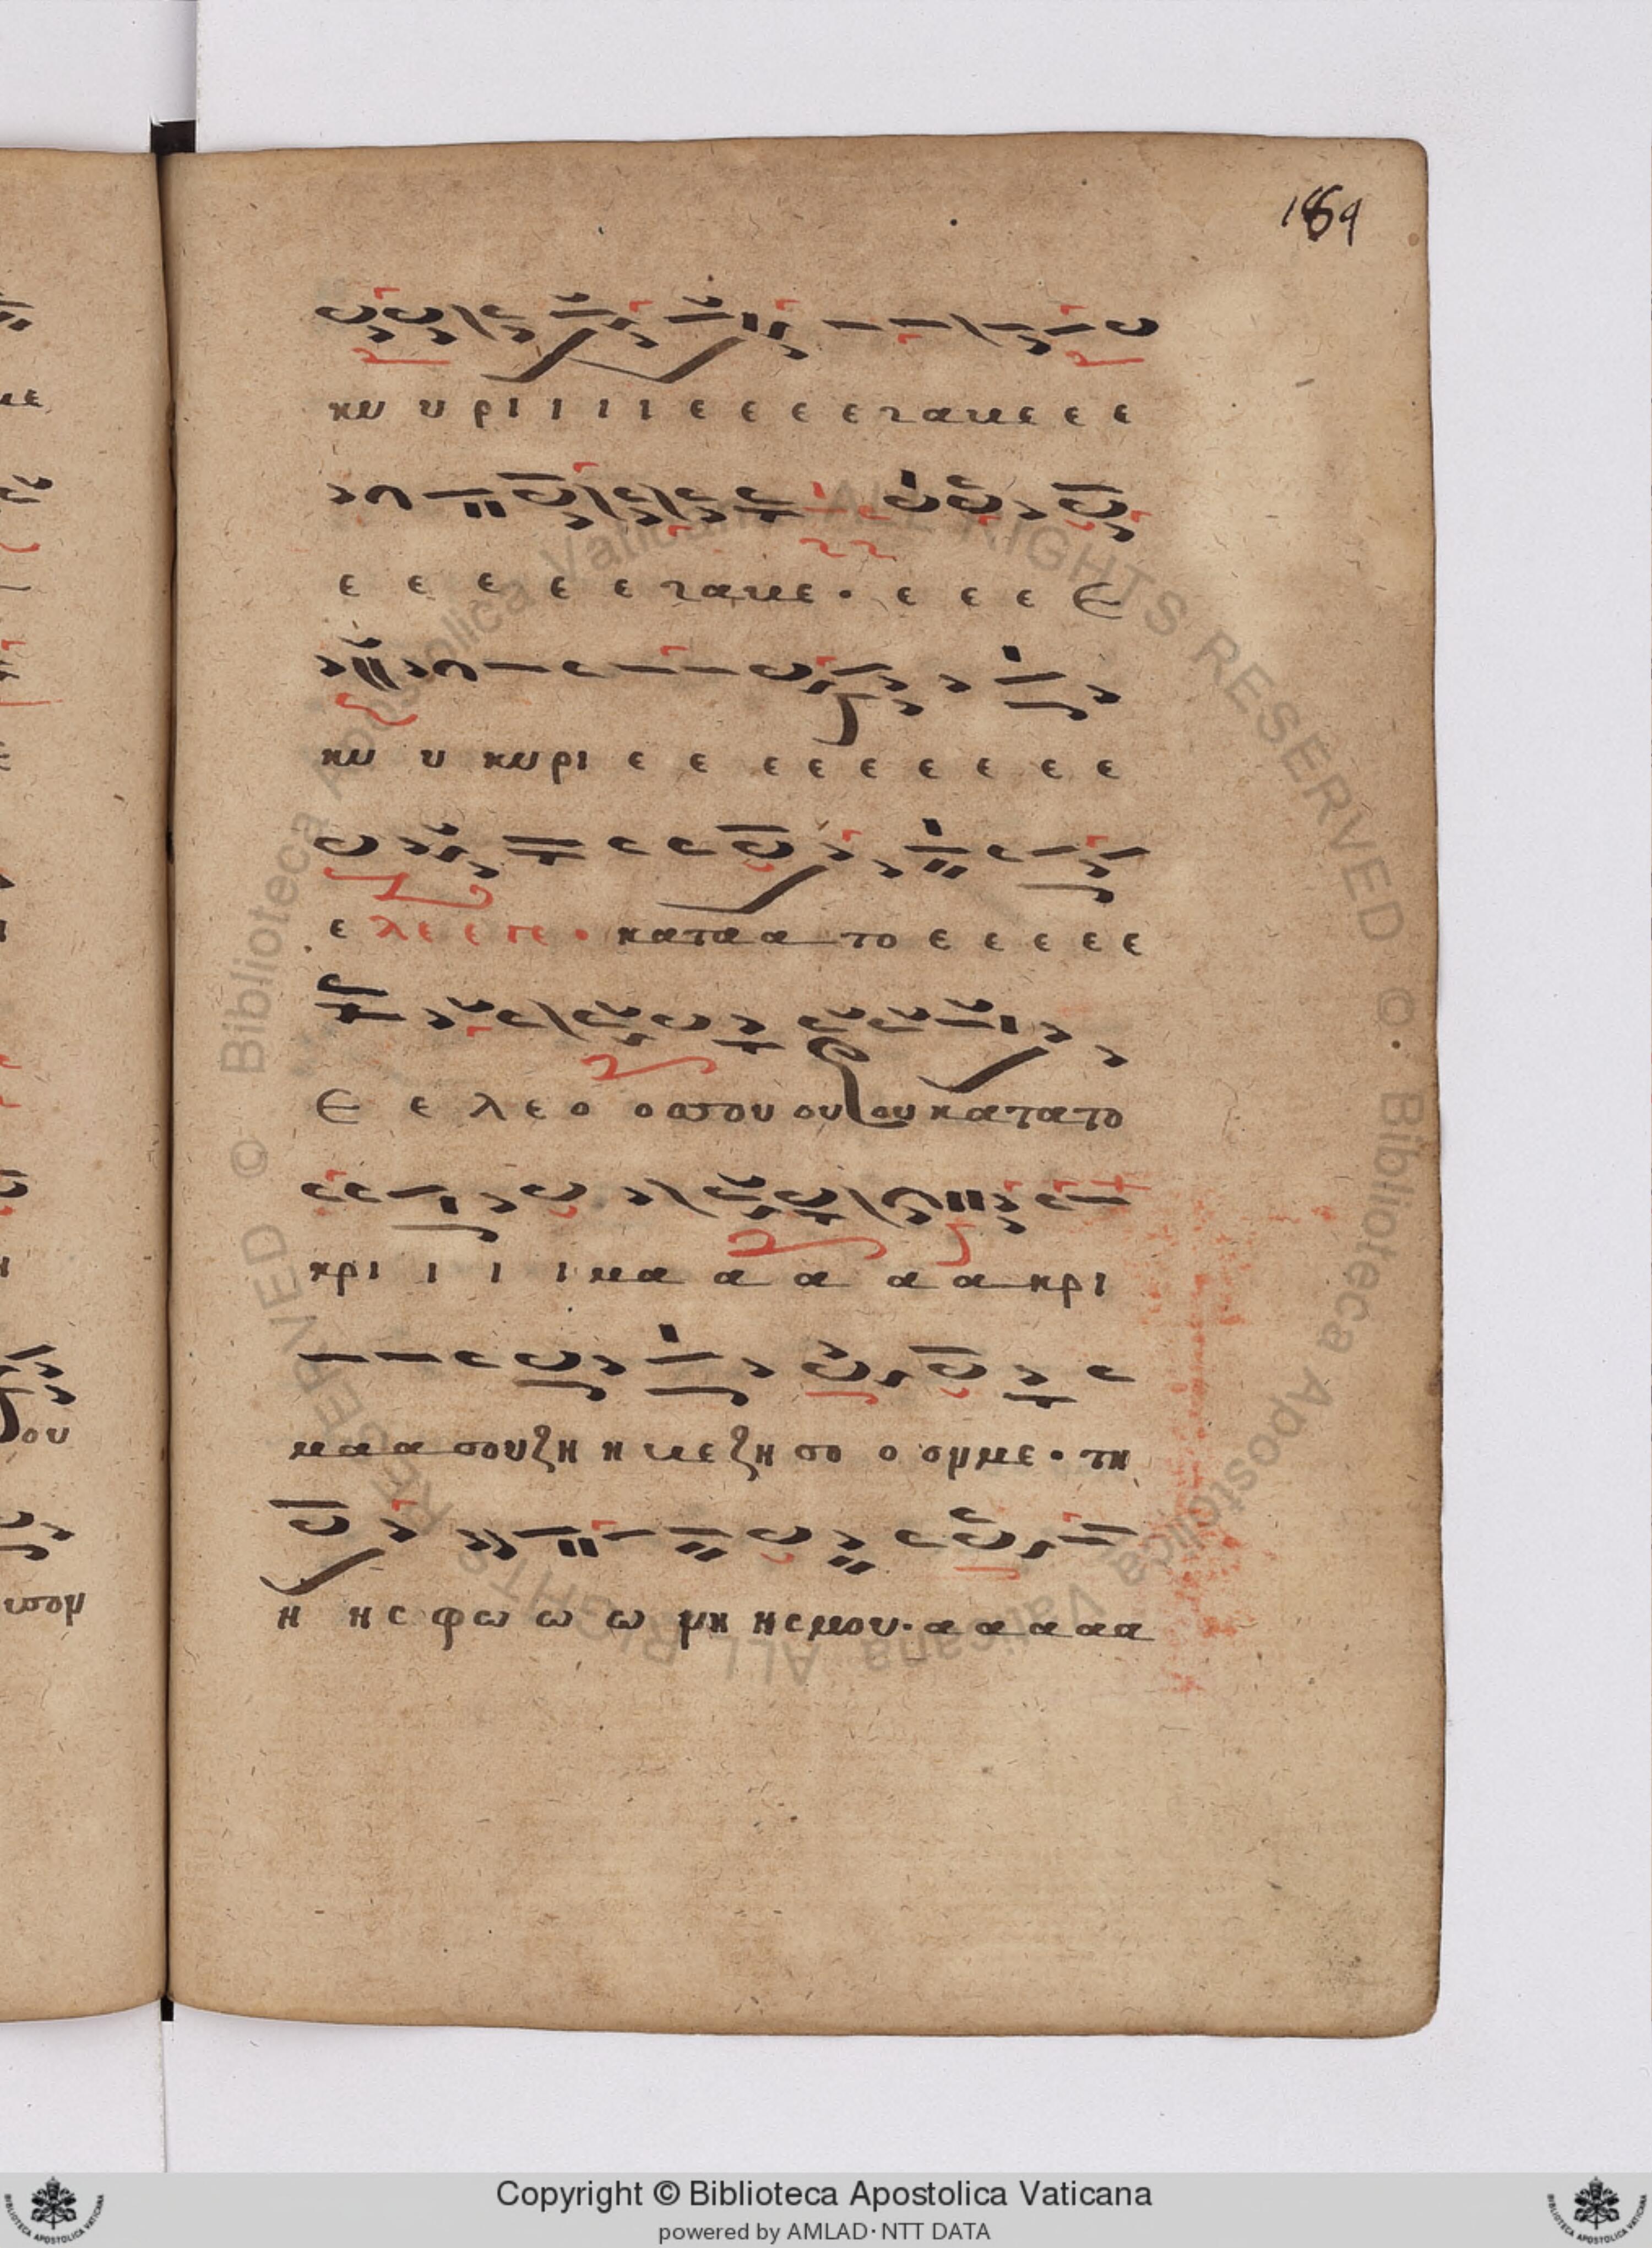 189
κυ υ ρι ι ι ι ε ε ε ε ταυε ε ε
ε ε ε ε ε ταυε · ε ε ε ε
κυ υ κυρι ε ε ε ε ε ε ε ε ε
ε λε ε πε · κατα α το ε ε ε ε ε
ε ε λ ε ο ο σου ου ου κατατο
κρι ι ι ι μα α α α α κρι
μα α σουζη η με ζη σο ο ομμε · τη
η ης φω ω ω μη ησμου · α α α α α
Copyright © Biblioteca Apostolica Vaticana
powered by AMLAD·NTT DATA